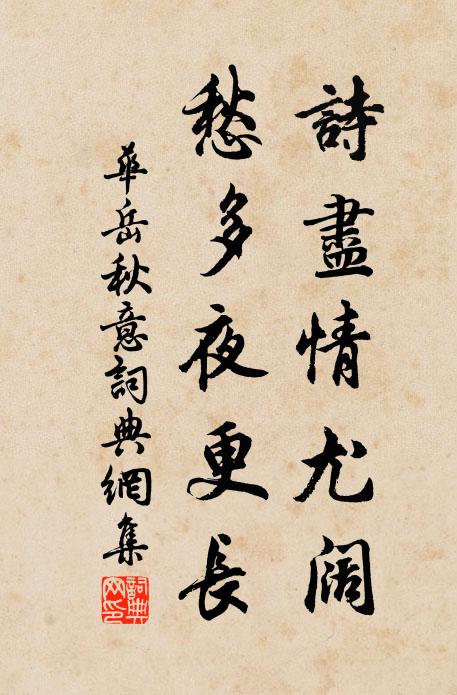 詩盡情尤阔
愁多夜更長
華岳秋意詞典網集
詞典網印